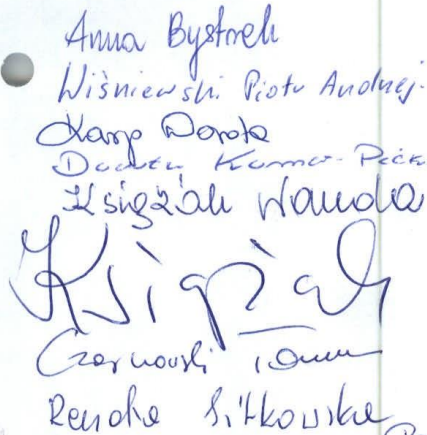 Anna Bystrek
Wiśniewski Piotr Andrzej
Karp Dorota
Dorota
Książek Wanda
Książek
Czarnowski
Renata Sitkowska